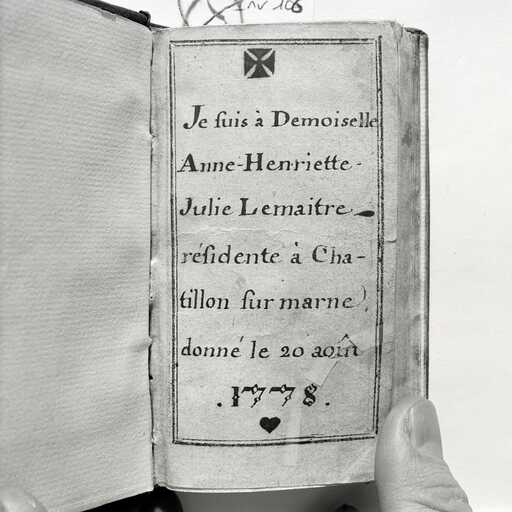 inv 106
Je ſuis à Demoiselle
Anne-Henriette-
Julie Lemaitre
réſidente à Cha-
tillon ſur marne),
donné le 20 août
.1778.